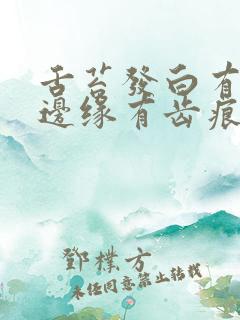 舌苔發白有
邊缘有齿痕
鄧樸方
未经同意禁止转载